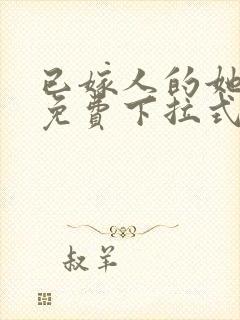 已嫁人的她
免費下拉式
叔羊